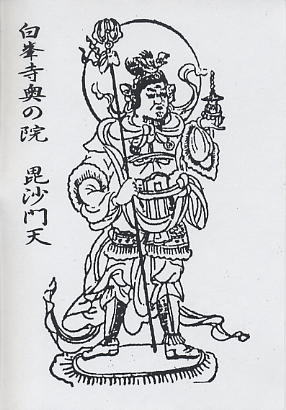 白峯寺奥の院　毘沙門天